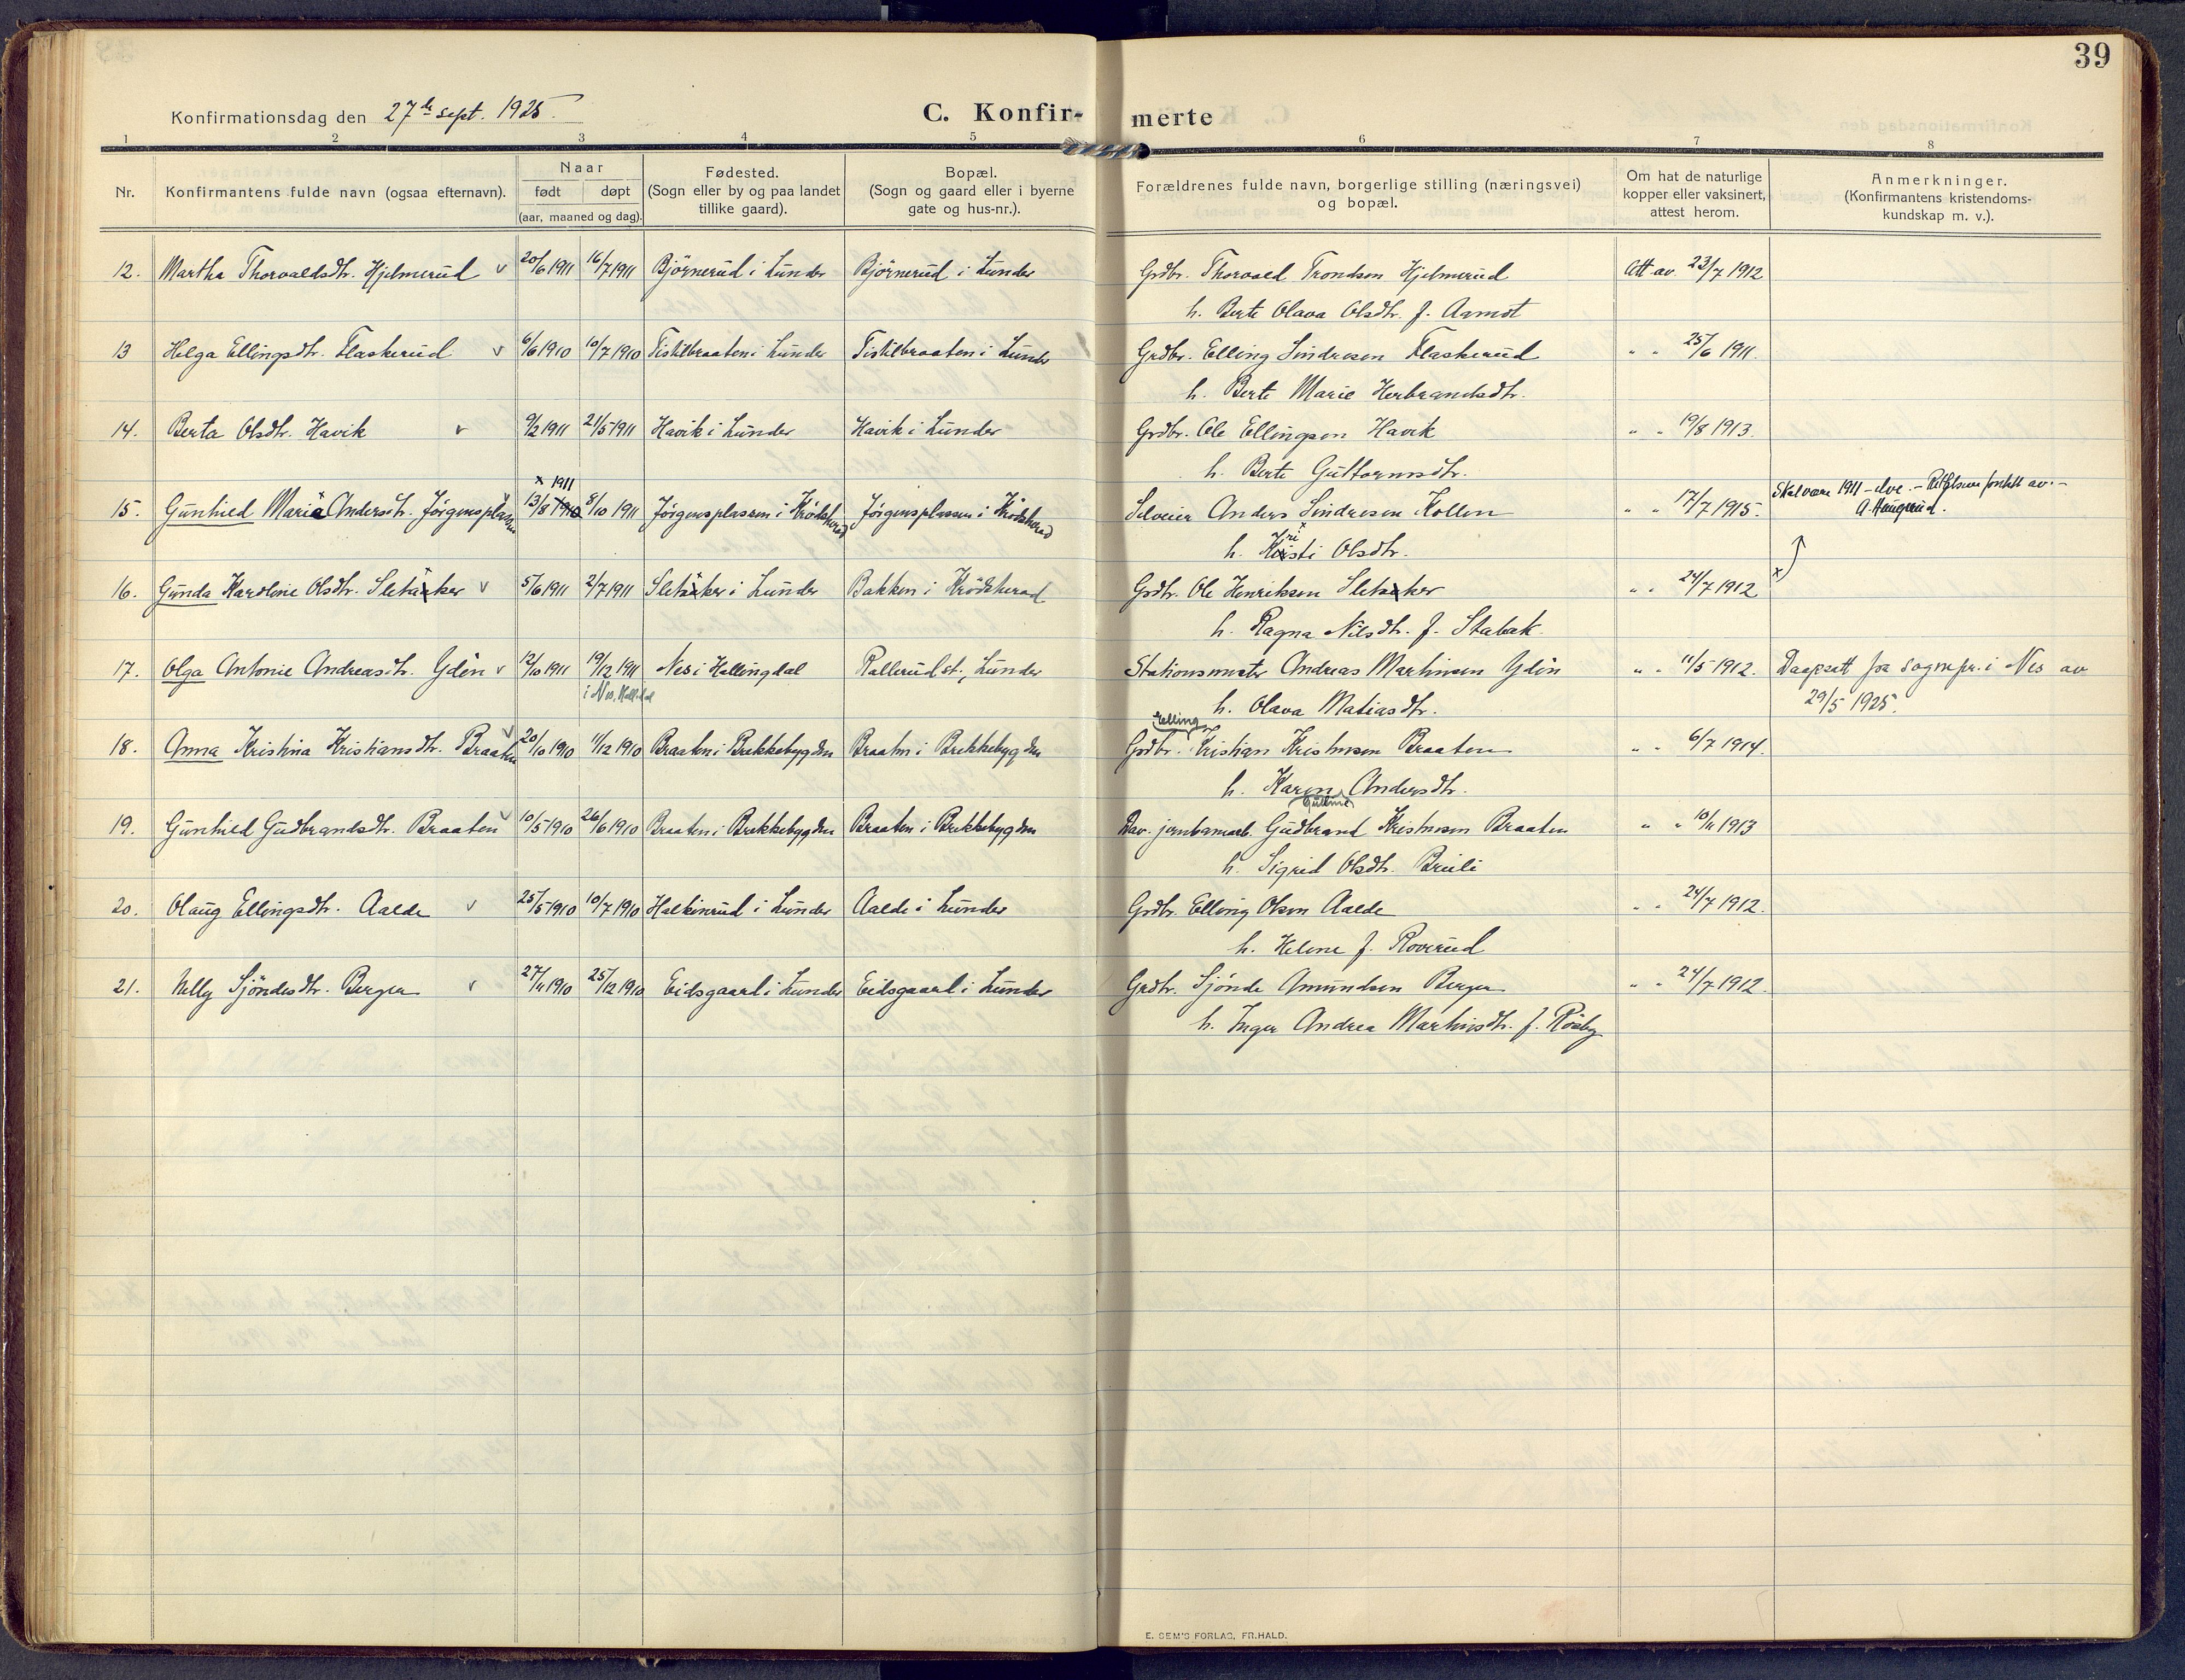 39
Konfirmationsdag den 27de sept. 1925.
C. Konfir-merte
1 2 3 4 5 6 7 8
Nr.
Konfirmantens fulde navn (ogsaa efternavn).
Naar
født døpt
(aar, maaned og dag).
Fødested.
(Sogn eller by og paa landet
tillike gaard).
Bopæl.
(Sogn og gaard eller i byerne
gate og hus-nr.).
Forældrenes fulde navn, borgerlige stilling (næringsvei)
og bopæl.
Om hat de naturlige
kopper eller vaksinert,
attest herom.
Anmerkninger.
(Konfirmantens kristendoms-
kundskap m. v.).
12. Martha Thorvaldsdtr. Hjelmerud v 20/6 1911 16/7 1911 Bjørnerud i Lunder Bjørnerud i Lunder Grdbr. Thorvald Trondsen Hjelmerud Att av 23/7 1912
h. Berte Olava Olsdtr. f. Aamot
13 Helga Ellingsdtr. Flaskerud v 6/6 1910 10/7 1910 Tistilbraaten i Lunder Tistilbraaten i Lunder Grdbr. Elling Sindresen Flaskerud " " 25/6 1911.
h. Berte Marie Herbrandsdtr.
14. Berta Olsdtr. Havik v 9/2 1911 21/5 1911 Havik i Lunder Havik i Lunder Grdbr. Ole Ellingsen Havik " " 19/8 1913.
h. Berte Guttormsdtr.
x 1911
15. Gunhild Marie Andersdtr. Jörgensplassen 13/8 1910 8/10 1911 Jörgensplassen i Krödsherad Jörgensplassen i Krödsherad Selveier Anders Sindresen Kollen " " 17/7 1915. Skal være 1911 - elve. - Rettelsen foretatt av. -
A. Haugerud.
h. Kristi Olsdtr.
16. Gunda Karoline Olsdtr. Sletäker v 5/6 1911 2/7 1911 Sletäker i Lunder Bakken i Krödsherad Grdbr. Ole Henriksen Sletäker " " 24/7 1912 x
h. Ragna Nilsdtr. f. Stabæk.
17. Olga Antonie Andreasdtr. Ydén v 12/10 1911 19/12 1911 Nes i Hallingdal Rallerud st., Lunder Stationsmester Andreas Martinsen Ydén " " 11/5 1912. Daapsatt fra sognepr. i Nes av
i Nes, Hallingdal
29/5 1925.
h. Olava Matiasdtr.
Elling
18. Anna Kristina Kristiansdtr. Braaten v 20/10 1910 11/12 1910 Braaten i Brekkebygden Braaten i Brekkebygden Grdbr. Kristian Kristensen Braaten " " 6/7 1914.
h. Karen Andersdtr.
19. Gunhild Gudbrandsdtr. Braaten v 10/5 1910 26/6 1910 Braaten i Brekkebygden Braaten i Brekkebygden Dav. jernbanearb. Gudbrand Kristensen Braaten " " 10/11 1913
h. Sigrid Olsdtr. Bruli
20. Olaug Ellingsdtr. Aalde v 25/5 1910 10/7 1910 Halkinrud i Lunder Aalde i Lunder Grdbr. Elling Olsen Aalde " " 24/7 1912.
h. Helene f. Roverud
21. Nelly Sjöndesdtr. Berger v 27/11 1910 25/12 1910 Eidsgaard i Lunder Eidsgaard i Lunder Grdbr. Sjönde Amundsen Berger " " 24/7 1912.
h. Inger Andrea Martinsdtr. f. Rösby
E. SEM'S FORLAG, FR.HALD.